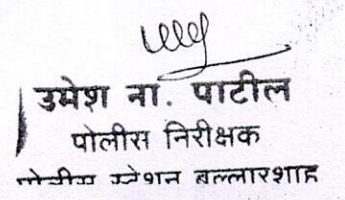 उमेश ना. पाटील
पोलीस निरीक्षक
पोलीस स्टेशन बल्लारशाह